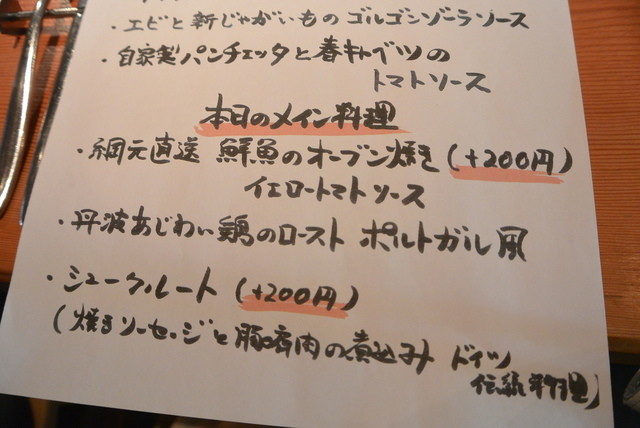 ・エビと新じゃがいものゴルゴンゾーラソース
・自家製パンチェッタと春キャベツの
トマトソース
本日のメイン料理
・網元直送 鮮魚のオーブン焼き(+200円)
イエロートマトソース
・丹波あじわい鶏のロースト ポルトガル風
・シュークルート (+200円)
(焼きソーセージと豚肩肉の煮込み ドイツ
伝統料理)